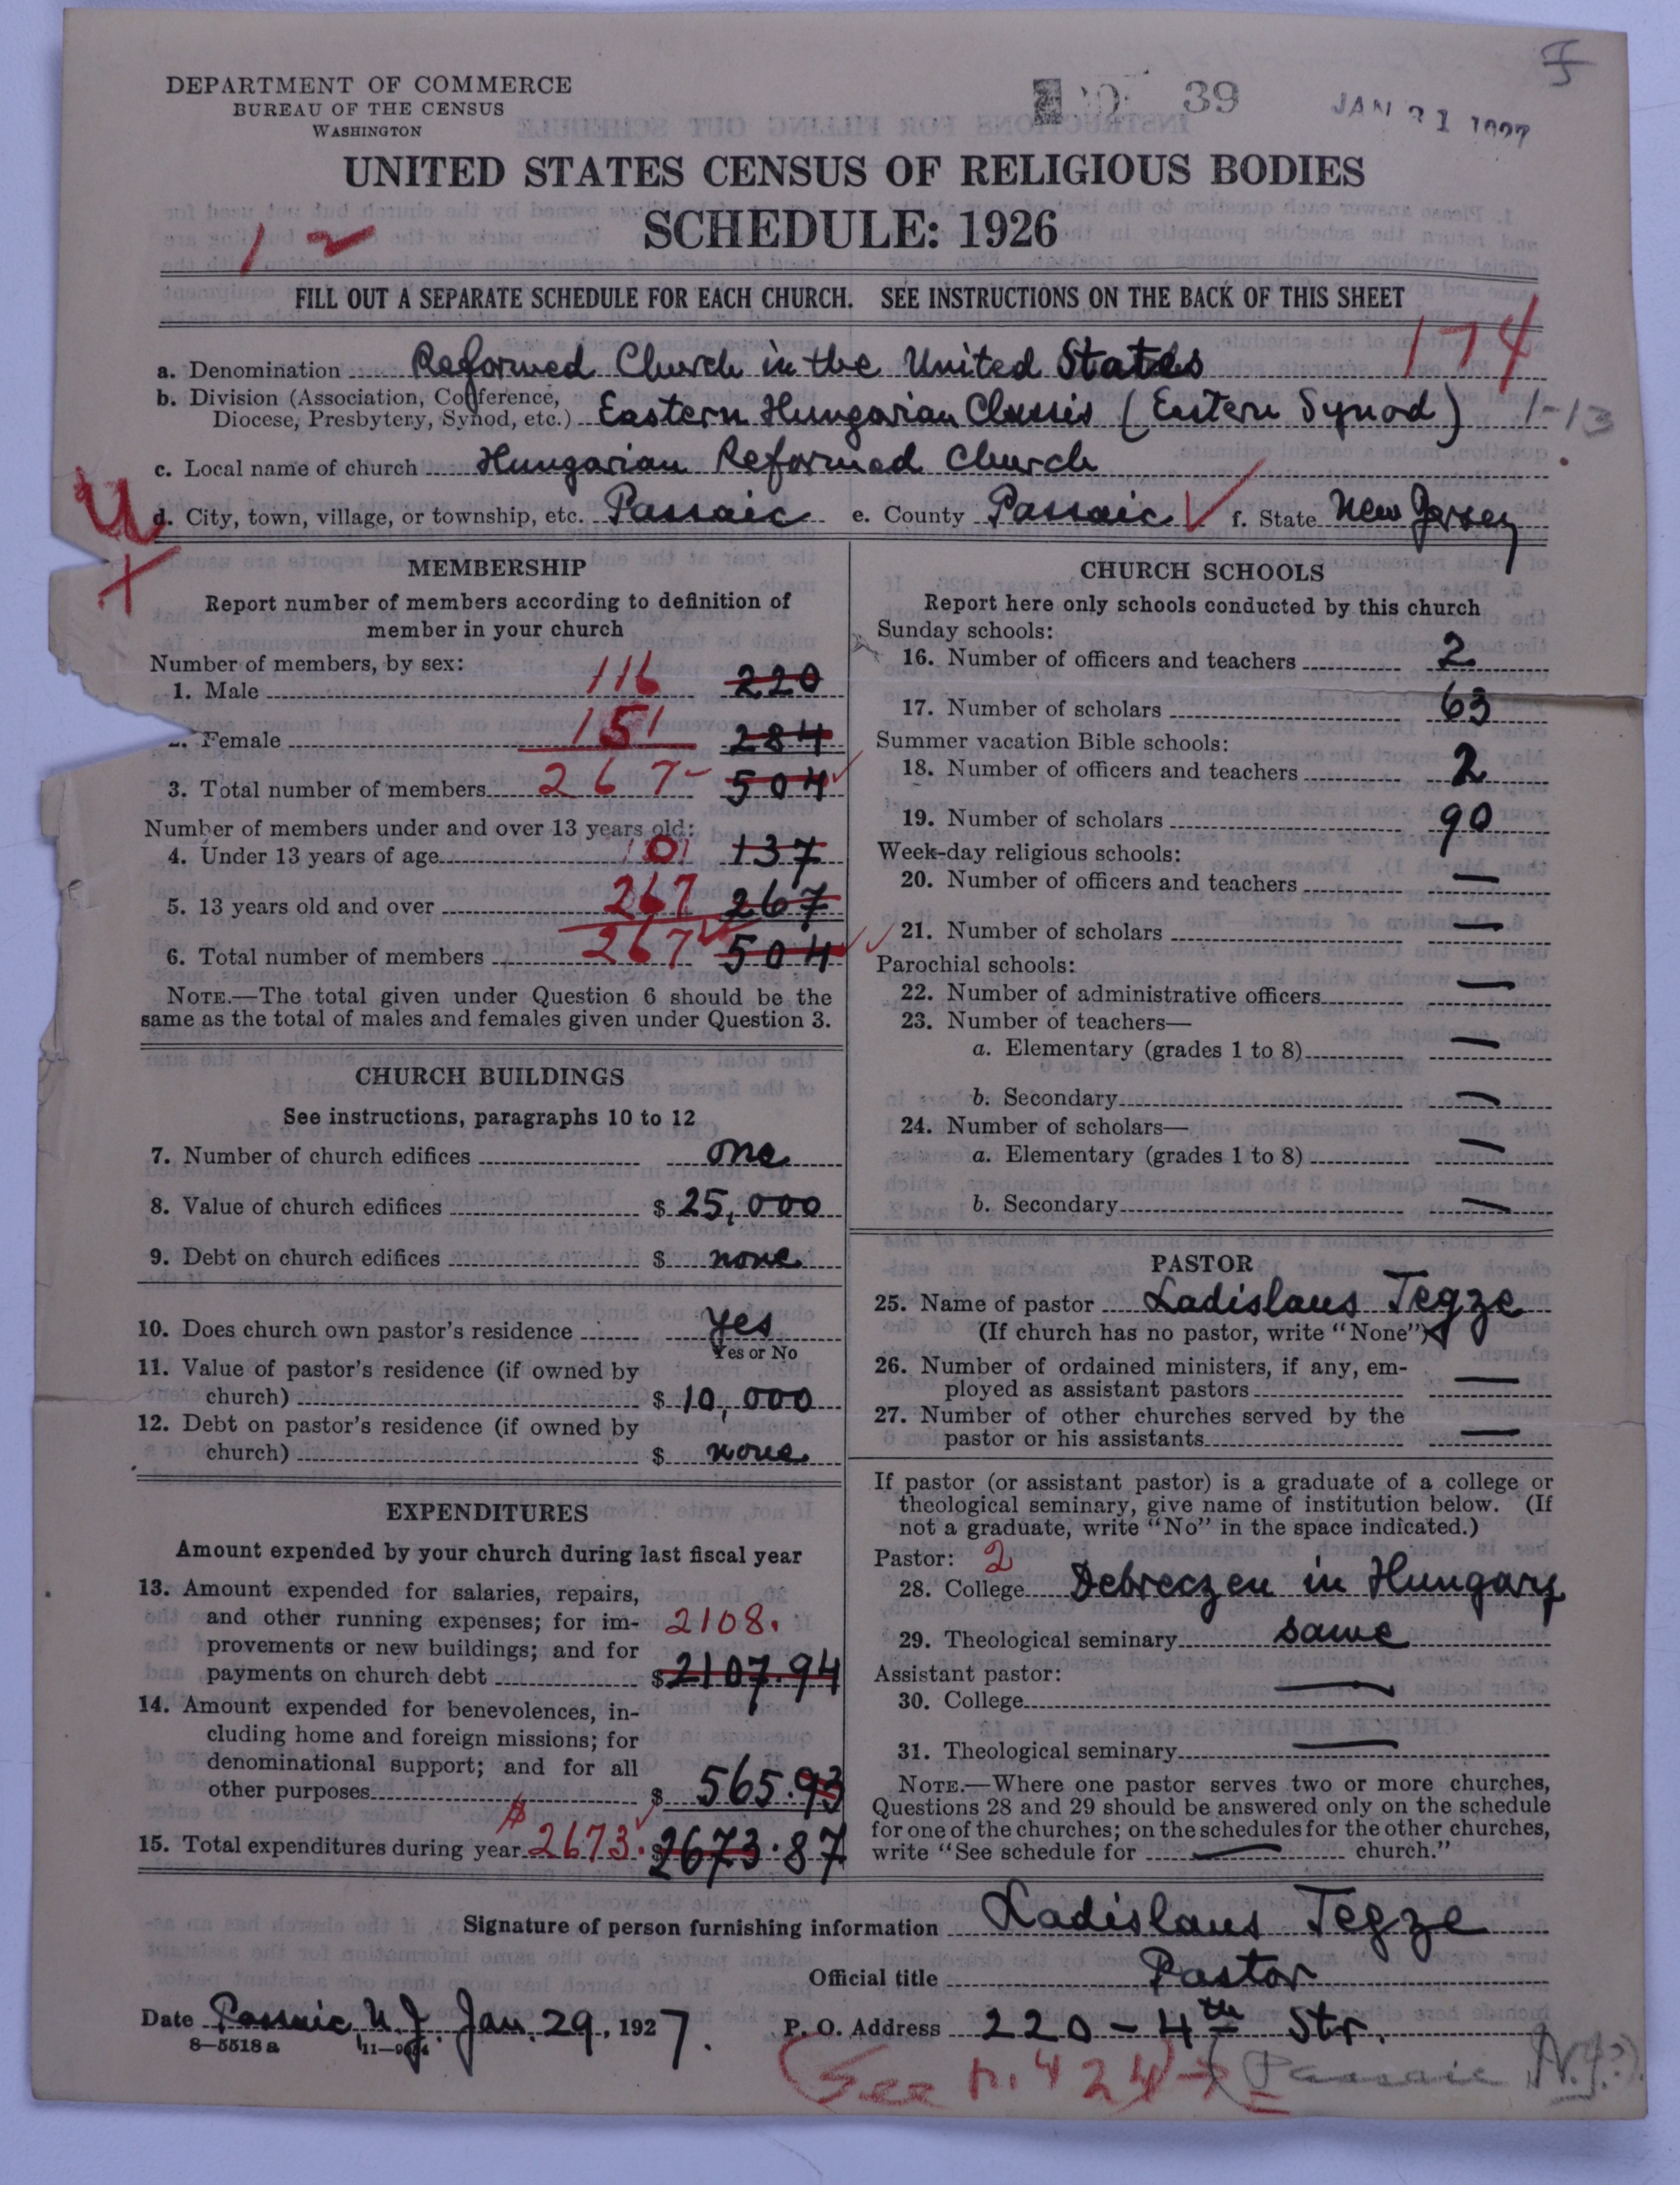 DEPARTMENT OF COMMERCE
BUREAU OF THE CENSUS
WASHINGTON
39
JAN 31 1927
UNITED STATES CENSUS OF RELIGIOUS BODIES
SCHEDULE: 1926
1 2
FILL OUT A SEPARATE SCHEDULE FOR EACH CHURCH. SEE INSTRUCTIONS ON THE BACK OF THIS SHEET
174
a. Denomination Reformed Church in the United States
b. Division (Association, Conference,
Diocese, Presbytery, Synod, etc.) Eastern Hungarian Classis (Eastern Synod) 1-13
c. Local name of church Hungarian Reformed Church
d. City, town, village, or township, etc. Passaic e. County Passaic f. State New Jersey
MEMBERSHIP
Report number of members according to definition of
member in your church
Number of members, by sex:
1. Male 116 220
2. Female 151 284
3. Total number of members 267 504
Number of members under and over 13 years old:
4. Under 13 years of age 101 137
5. 13 years old and over 267 267
6. Total number of members 267 504
NOTE.—The total given under Question 6 should be the
same as the total of males and females given under Question 3.
CHURCH BUILDINGS
See instructions, paragraphs 10 to 12
7. Number of church edifices one
8. Value of church edifices $ 25,000
9. Debt on church edifices $ none
10. Does church own pastor's residence yes
Yes or No
11. Value of pastor's residence (if owned by
church) $ 10,000
12. Debt on pastor's residence (if owned by
church) $ none
EXPENDITURES
Amount expended by your church during last fiscal year
13. Amount expended for salaries, repairs,
and other running expenses; for im- 2108.
provements or new buildings; and for
payments on church debt $ 2107.94
14. Amount expended for benevolences, in-
cluding home and foreign missions; for
denominational support; and for all
other purposes $ 565.93
15. Total expenditures during year $ 2673. $ 2673.87
CHURCH SCHOOLS
Report here only schools conducted by this church
Sunday schools:
16. Number of officers and teachers 2
17. Number of scholars 63
Summer vacation Bible schools:
18. Number of officers and teachers 2
19. Number of scholars 90
Week-day religious schools:
20. Number of officers and teachers —
21. Number of scholars —
Parochial schools:
22. Number of administrative officers —
23. Number of teachers—
a. Elementary (grades 1 to 8) —
b. Secondary —
24. Number of scholars—
a. Elementary (grades 1 to 8) —
b. Secondary —
PASTOR
25. Name of pastor Ladislaus Tegze
(If church has no pastor, write "None")
26. Number of ordained ministers, if any, em-
ployed as assistant pastors —
27. Number of other churches served by the
pastor or his assistants —
If pastor (or assistant pastor) is a graduate of a college or
theological seminary, give name of institution below. (If
not a graduate, write "No" in the space indicated.)
Pastor: 2
28. College Debreczen in Hungary
29. Theological seminary same
Assistant pastor:
30. College —
31. Theological seminary —
NOTE.—Where one pastor serves two or more churches,
Questions 28 and 29 should be answered only on the schedule
for one of the churches; on the schedules for the other churches,
write "See schedule for — church."
Signature of person furnishing information Ladislaus Tegze
Official title Pastor
Date Passaic, N.J. Jan. 29, 1927.
P. O. Address 220 - 4th Str.
8—5518a
(See p. 424) → (Passaic N.J.?)